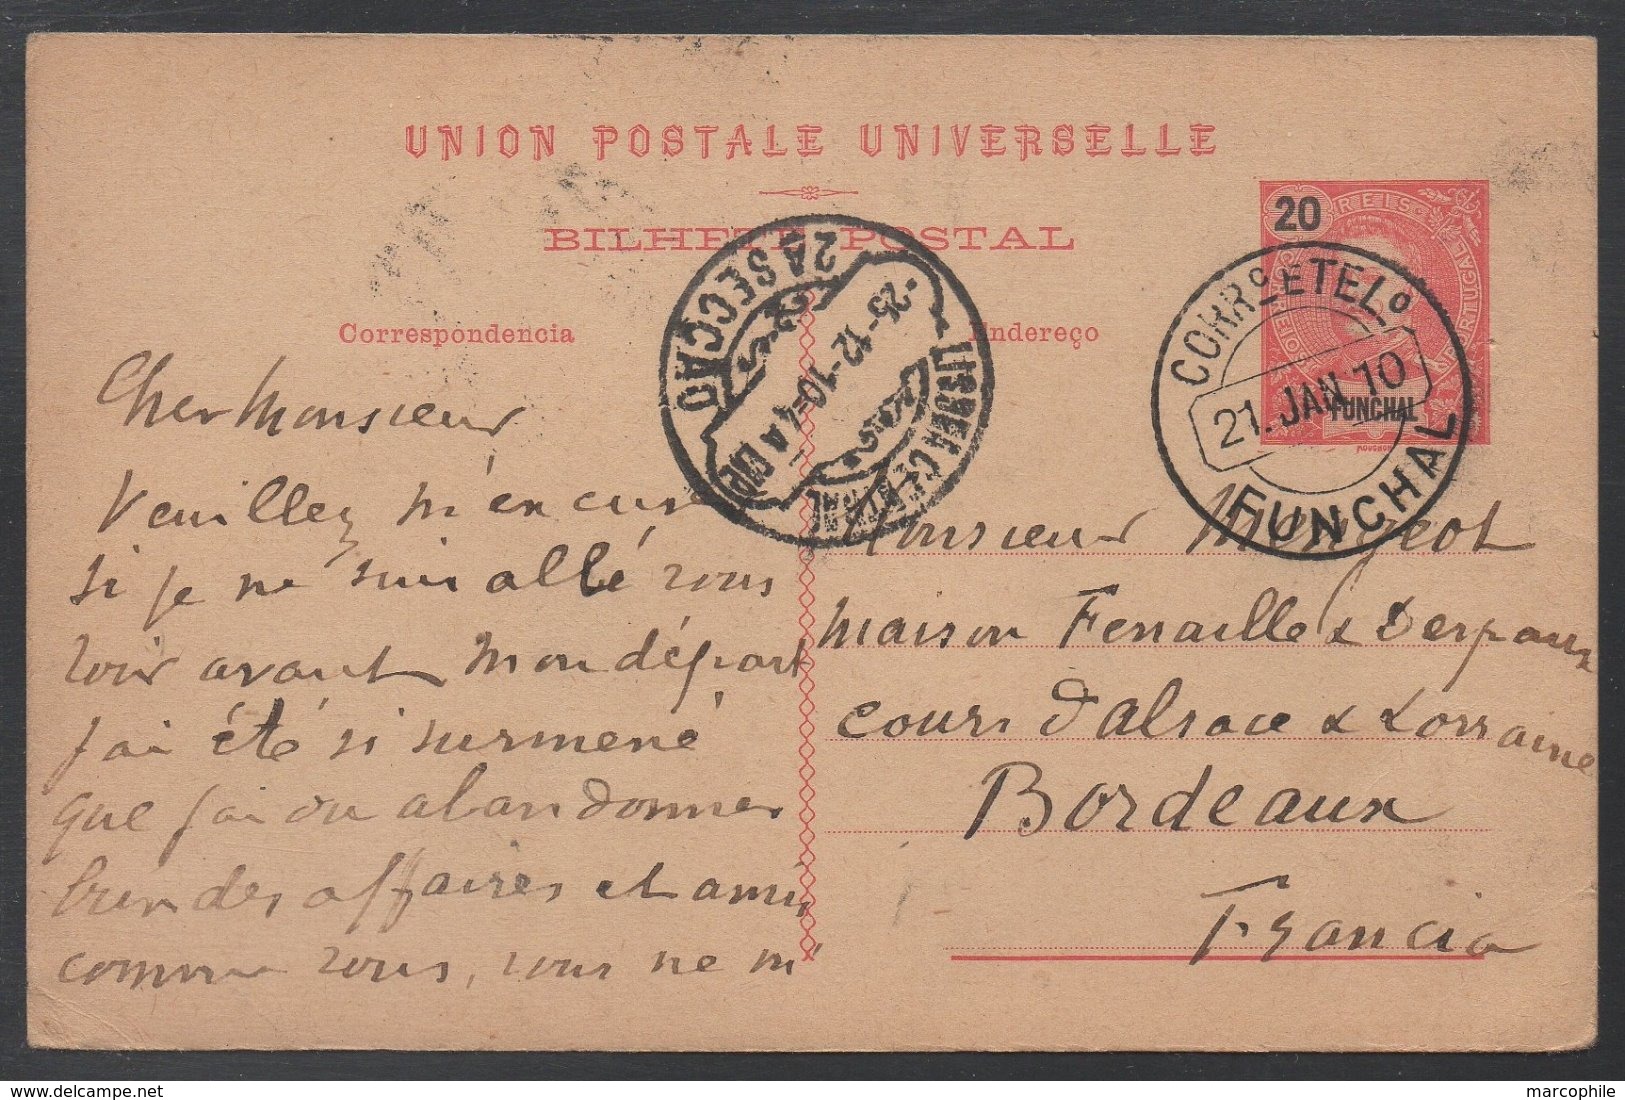 UNION POSTALE UNIVERSELLE
BILHETE POSTAL
Correspondencia
Endereço
20
REIS
PORTUGAL
FUNCHAL
MOUCHON
CORRº E TELº
21. JAN. 10
FUNCHAL
2A SECCÃO
LISBOA CENTRAL
Cher Monsieur
Veuillez m'excuser
si je ne suis allé vous
voir avant mon départ
j'ai été si surmené
que j'ai du abandonner
bien des affaires et amis
comme vous, vous ne m'
Monsieur Mengeot
maison Fenaille & Despeaux
cours d'Alsace & Lorraine
Bordeaux
Francia
marcophile